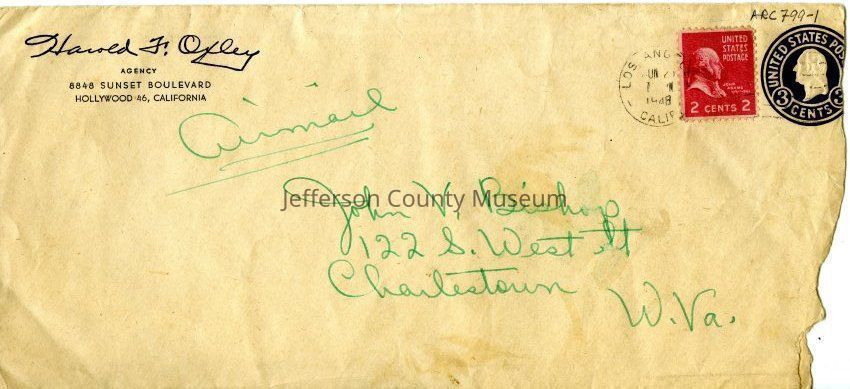 ARC 799-1
Harold F. Oxley
AGENCY
8848 SUNSET BOULEVARD
HOLLYWOOD 46, CALIFORNIA
LOS ANG
1948
CALIF
UNITED STATES POSTAGE
JOHN ADAMS
2 CENTS 2
UNITED STATES POS
3 CENTS
Airmail
Jefferson County Museum
John V. Bishop
122 S. West St
Charlestown
W.Va.